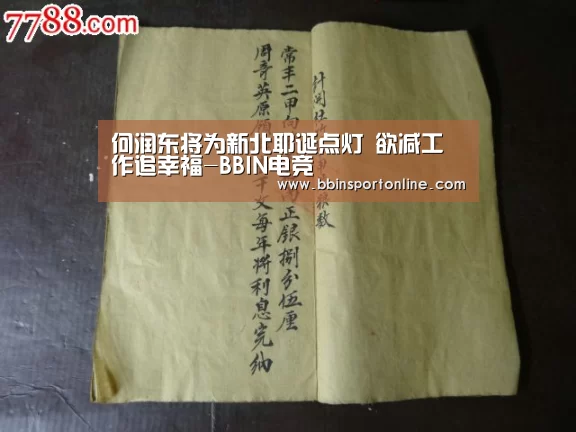 7788.com
何润东将为新北耶诞点灯 欲减工
作追幸福-BBIN电竞
www.bbinsportonline.com
数
常丰二甲
正银捌分伍厘
周奇英原
千文每年将利息完纳